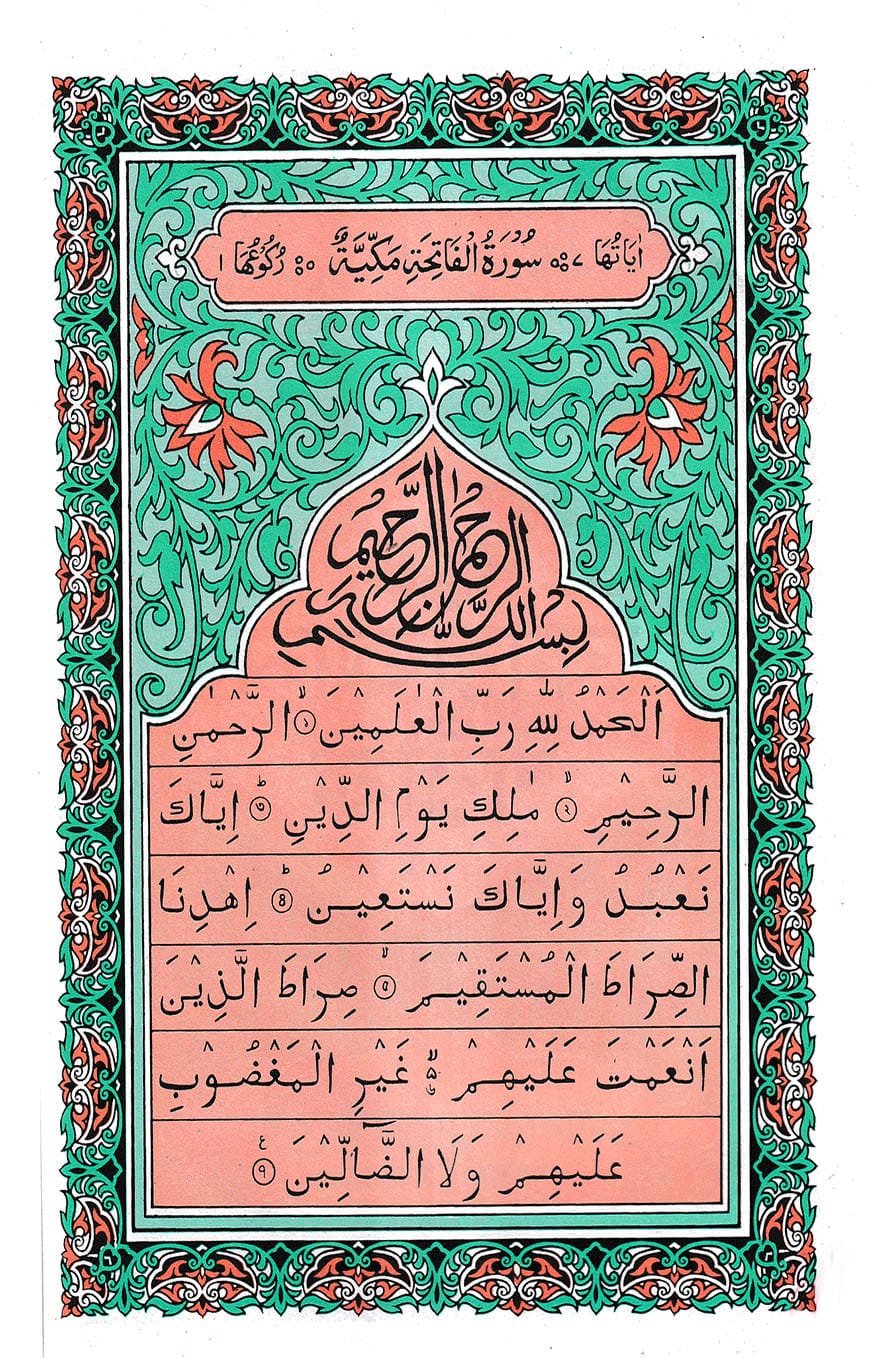 اٰيَاتُهَا ٧ سُوْرَةُ الْفَاتِحَةِ مَكِّيَّةٌ ٥ رُكُوْعُهَا ١
بِسْمِ اللهِ الرَّحْمٰنِ الرَّحِيْمِ
اَلْحَمْدُ لِلّٰهِ رَبِّ الْعٰلَمِيْنَ ۙ ١ الرَّحْمٰنِ
الرَّحِيْمِ ۙ ٢ مٰلِكِ يَوْمِ الدِّيْنِ ؕ ٣ اِيَّاكَ
نَعْبُدُ وَاِيَّاكَ نَسْتَعِيْنُ ؕ ۴ اِهْدِنَا
الصِّرَاطَ الْمُسْتَقِيْمَ ۙ ٥ صِرَاطَ الَّذِيْنَ
اَنْعَمْتَ عَلَيْهِمْ ۙ۵ غَيْرِ الْمَغْضُوْبِ
عَلَيْهِمْ وَلَا الضَّآلِّيْنَ ع